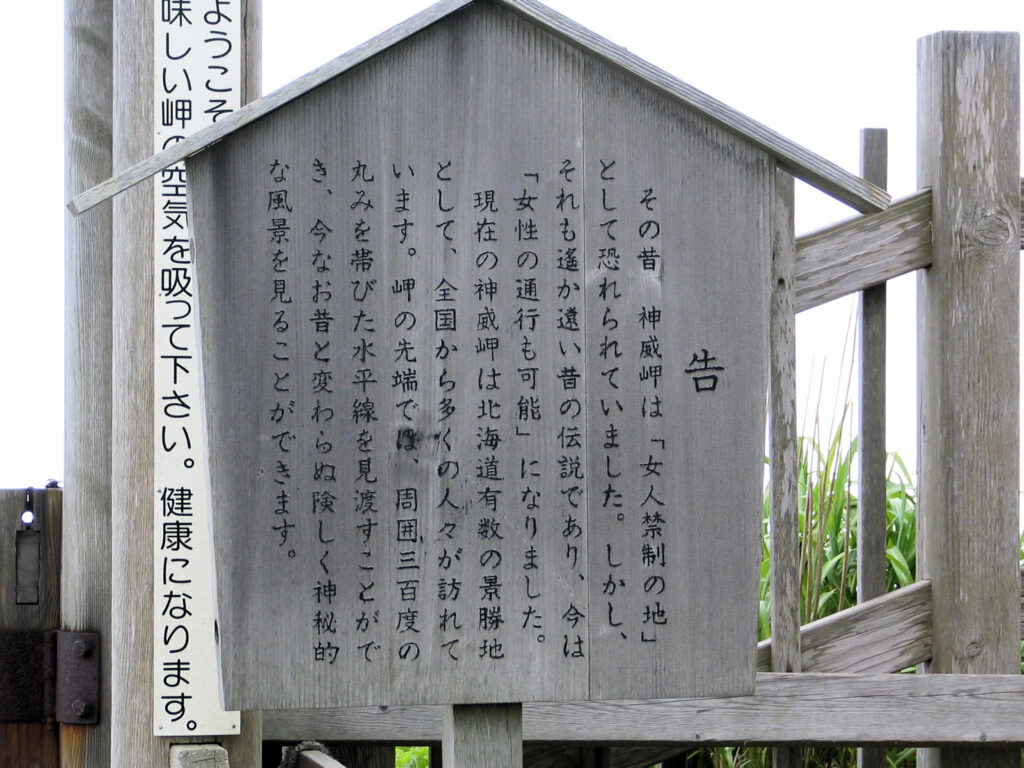 告
その昔　神威岬は「女人禁制の地」
として恐れられていました。しかし、
それも遙か遠い昔の伝説であり、今は
「女性の通行も可能」になりました。
現在の神威岬は北海道有数の景勝地
として、全国から多くの人々が訪れて
います。岬の先端では、周囲三百度の
丸みを帯びた水平線を見渡すことがで
き、今なお昔と変わらぬ険しく神秘的
な風景を見ることができます。
ようこそ
味しい岬の空気を吸って下さい。健康になります。